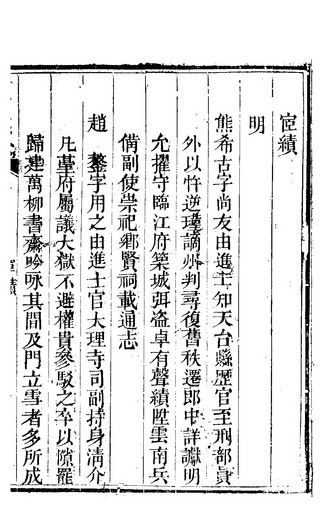 宦績
明
熊希古字尚友由進士知天台縣歷官至刑部員
外以忤逆瑾謫州判尋復舊秩遷郎中詳讞明
允擢守臨江府築城弭盜卓有聲績陞雲南兵
備副使崇祀鄉賢祠載通志
趙 鏊字用之由進士官大理寺司副持身清介
凡䕫府屬議大獄不避權貴參駁之卒以隙罷
歸建萬柳書齋吟咏其間及門立雪者多所成
宦績